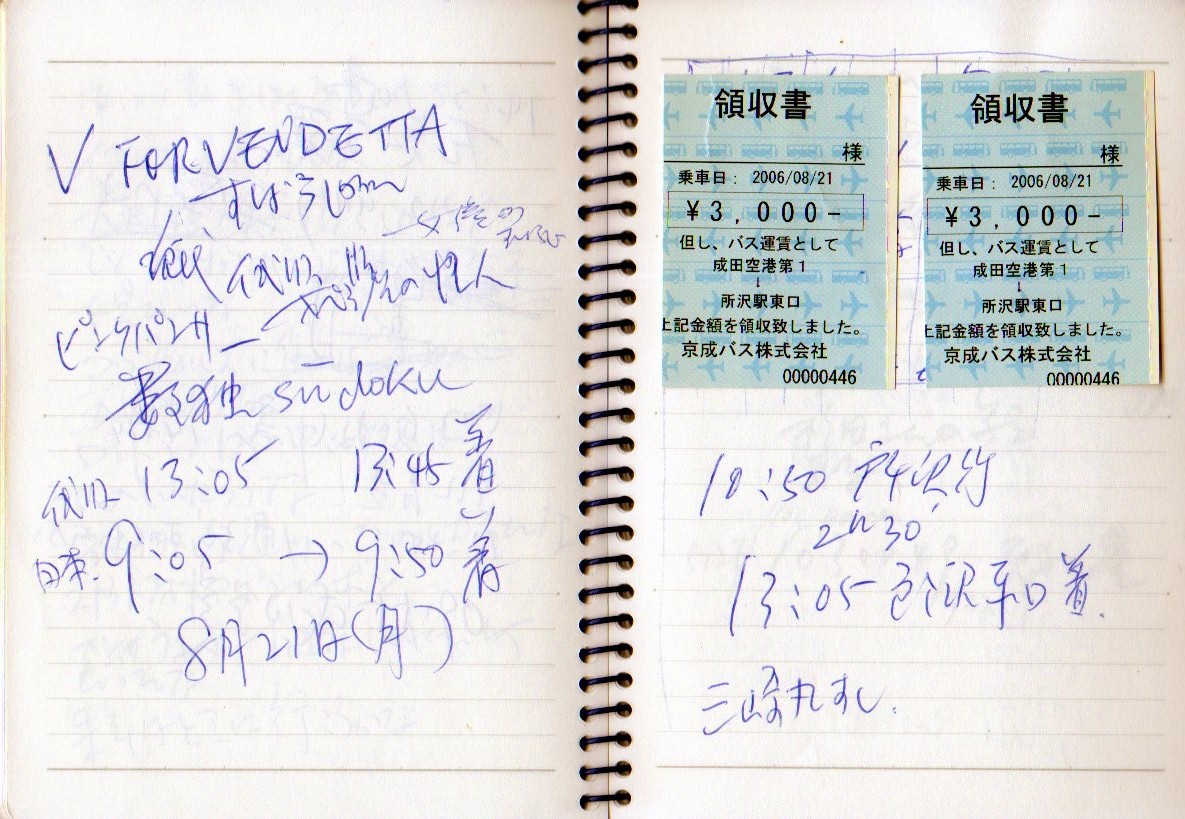 V FOR VENDETTA
すばらしい
ピンクパンサー
数独 sudoku
13:05 13:45 着
日本 9:05 → 9:50 着
8月21日(月)
領収書
様
乗車日: 2006/08/21
¥3,000-
但し、バス運賃として
成田空港第1
↓
所沢駅東口
上記金額を領収致しました。
京成バス株式会社
00000446
領収書
様
乗車日: 2006/08/21
¥3,000-
但し、バス運賃として
成田空港第1
↓
所沢駅東口
上記金額を領収致しました。
京成バス株式会社
00000446
10:50 所沢行
2h30'
13:05 所沢東口着.
三崎丸すし.